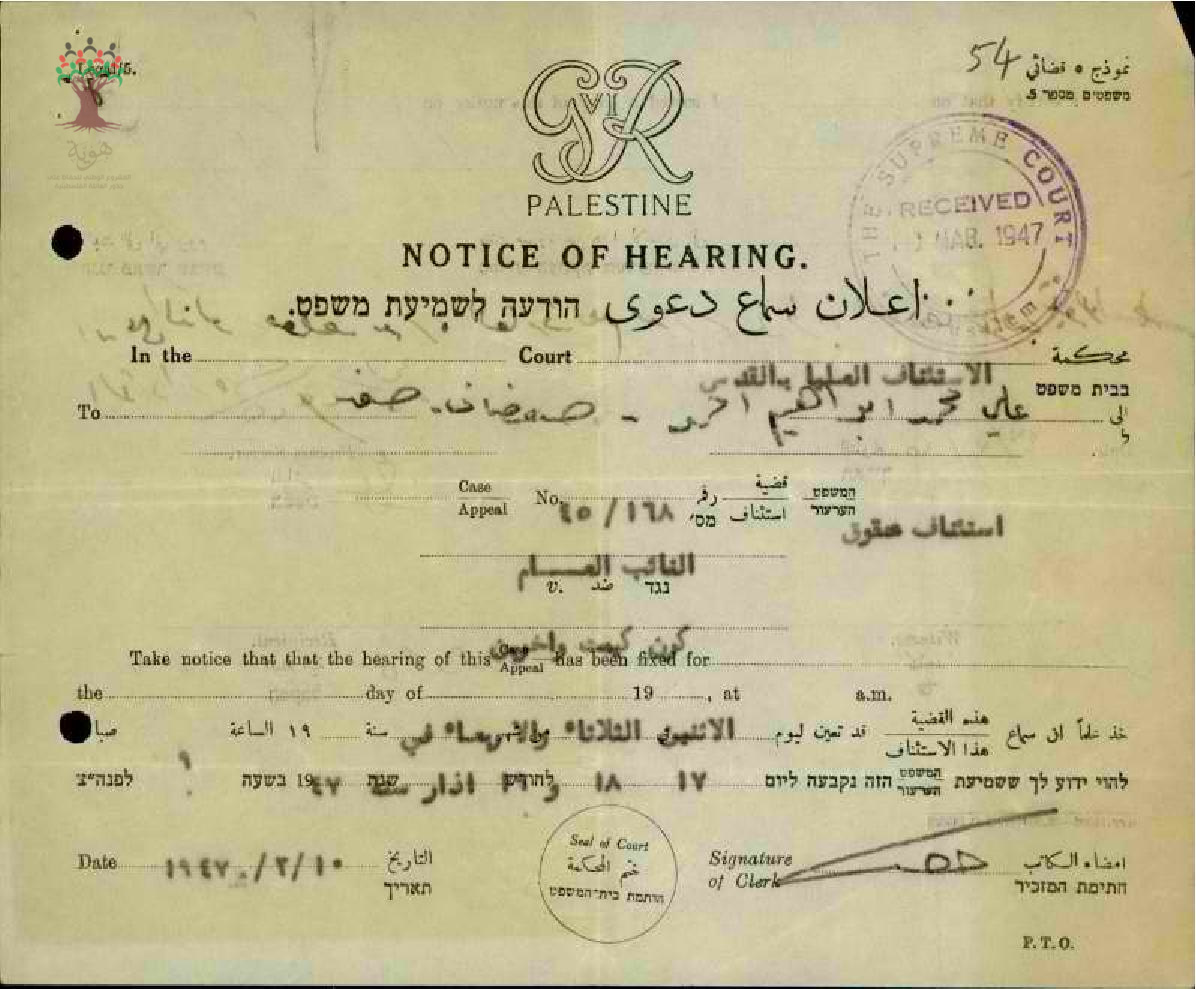 Legal/5.
54 نموذج ٥ قضائي
משפטים מספר 5.
هوية
G VI R
PALESTINE
THE SUPREME COURT
RECEIVED
MAR. 1947
NOTICE OF HEARING.
اعلان سماع دعوى הודעה לשמיעת משפט.
In the Court محكمة
الاستئناف العليا بالقدس
בבית משפט
To علي محمد ابراهيم احمد - صفد الى
ל
Case قضية המשפט
Appeal No. ٤٥/١٦٨ رقم מס' استئناف הערעור
استئناف حقوق
النائب العام
v. ضد נגד
كرن كيمت واخرين
Take notice that that the hearing of this Case Appeal has been fixed for
the day of 19 , at a.m.
خذ علماً ان سماع هذه القضية هذا الاستئناف قد تعين ليوم الاثنين الثلاثاء والاربعاء في سنة ١٩ الساعة صبا
להוי ידוע לך ששמיעת המשפט הערעור הזה נקבעה ליום ١٧ ١٨ و ١٩ اذار سنة ٤٧ לחודש שנת 19 בשעה ٩ לפנה״צ
Date ١٩٤٧/٣/١٠ التاريخ
תאריך
Seal of Court
ختم المحكمة
חותמת בית־המשפט
Signature of Clerk امضاء الكاتب
חתימת המזכיר
P.T.O.